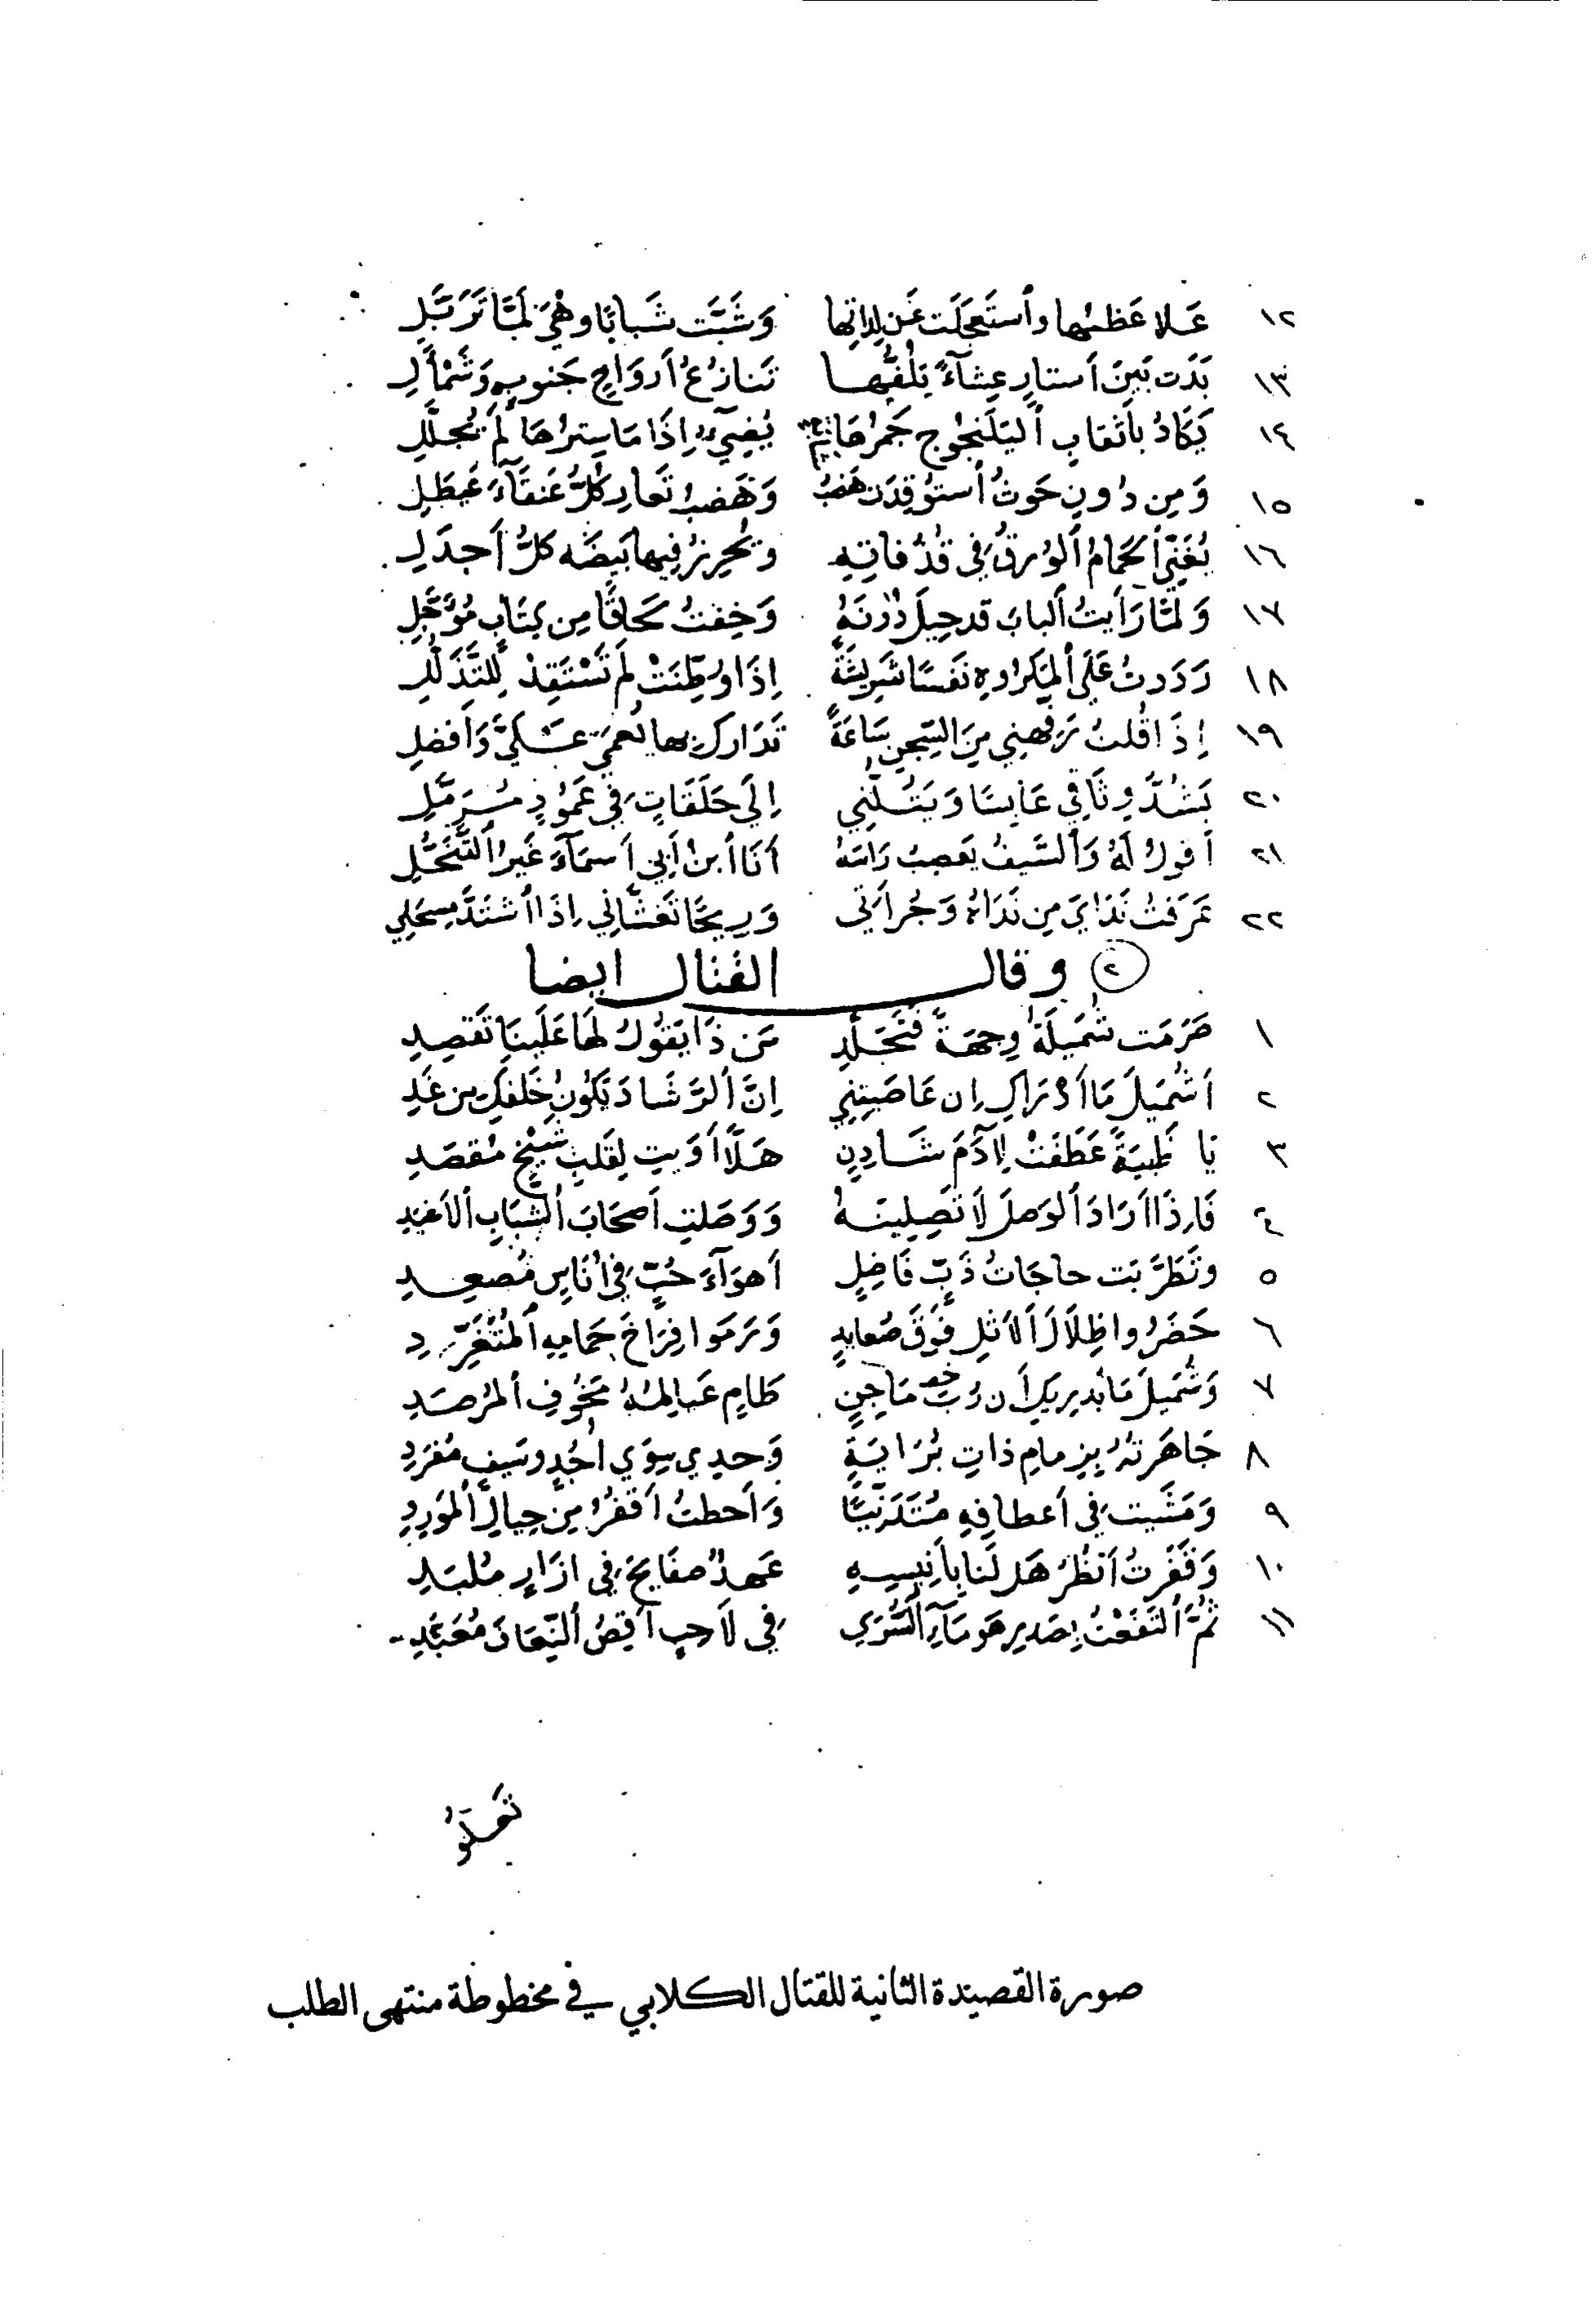 ١٢ عَلا عَظمُها وٱستَعجَلَت عَن لِداتِها وَشَبَّت شَبابًا وهْيَ لمَّا تَرَبَّلِ
١٣ بَدَت بَينَ أَستارٍ عِشآءً يَلُفُّها تَنازُعُ أَروَاحٍ جَنوبٍ وَشَمأَلِ
١٤ يَكادُ بأَثقابِ ٱليَلَنجُوجِ جَمرُها يُضِيءُ إِذَا مَا سِترُها لَم يُجَلَّلِ
١٥ وَمِن دُونِ حَوثُ ٱستُوقِدَت هَضبُ وَهَضبُ تَعارٍ كُلُّ عَنقَآءَ عَيطَلِ
١٦ يُغَنِّي ٱلحَمامُ ٱلوُرقُ في قُذُفاتِهِ وَيُحرِزُ فِيها بَيضَه كلُّ أَجدَلِ
١٧ وَلمَّا رَأَيتُ ٱلبابَ قد حِيلَ دُونَهُ وَخِفتُ لَحاقًا مِن كِتَابٍ مُؤَجَّلِ
١٨ رَدَدتُ عَلَى ٱلمَكرُوهِ نَفسًا شَرِيسَةً إِذَا وُطِّنَتْ لَم تَسْتَقِدْ لِلتَّذَلُّلِ
١٩ إِذَا قُلتُ رَفِّهنِي مِنَ السِّجنِ سَاعَةً تَدَارَك بها نُعمَى عَلَيَّ وَأَفضِلِ
٢٠ يَشُدُّ وِثَاقِي عَابِسًا وَيَتُلُّنِي إِلَى حَلَقَاتٍ في عَمُودٍ مُرَمَّلِ
٢١ أَقولُ لَهُ وَٱلسَّيفُ يَعصِبُ رَأسَهُ أَنَا ٱبنُ أَبِي أَسمَآءَ غَيرُ ٱلتَّنَحُّلِ
٢٢ عَرَفتُ نَدَايَ مِن نَدَاهُ وَجُرأَتي وَرِيحًا تَغَشَّانِي إِذَا ٱشتَدَّ مِسحَلِي
٢ وقال القتال ايضا
١ صَرَمَت شُمَيلَةُ وِجهَةً فَتَجَلَّدِ مَن ذَا يَقُولُ لَهَا عَلَينَا تَقصِدِ
٢ أَشُمَيلَ مَا أَدْرَاكِ إِن عَاصَيتِنِي إِنَّ ٱلرَّشَادَ يَكُونُ خَلفَكِ مِن غَدِ
٣ يَا ظَبيَةً عَطَفَتْ لِآدَمَ شَادِنٍ هَلَّا أَوَيتِ لِقَلبِ شَيْخٍ مُقصَدِ
٤ فَإِذَا أَرَادَ ٱلوَصلَ لَا تَصِلِينَهُ وَوَصَلتِ أَصحَابَ ٱلشَّبَابِ ٱلأَغيَدِ
٥ وتَطَرَّبَت حاجَاتُ دَبٍّ قَافِلٍ أَهوَآءَ حُبٍّ في أُنَاسٍ مُصعِدِ
٦ حَضَرُوا ظِلَالَ ٱلأَثلِ فَوقَ صُعايدٍ وَرَمَوا فِرَاخَ حَمَامِهِ ٱلمُتَغَرِّدِ
٧ وَشُمَيلَ مَا يُدرِيكِ أَن رُبَّ مَاجِنٍ طَامٍ عَيالِمُهُ مَخُوفِ ٱلمَرصَدِ
٨ جَاهَرتُهُ بِزِمامِ ذاتِ بُرَايَةٍ وَحدِي سِوَى أُجُدٍ وسَيفٍ مُفرَدِ
٩ وَمَشَيتُ في أَعطافِهِ مُتَدَنِّيًا وَأَحطتُ أَقفُرُ مِن حِيالِ ٱلمَورِدِ
١٠ وَقَفَرتُ أَنظُرُ هَل لَنا بِأَنِيسِهِ عَهدٌ صفَايِحَ في إِزَارٍ مُلبَدِ
١١ ثُمَّ ٱلتَفَعْتُ بِصَدرِ هَوجَآءِ ٱلسُّرَى في لَاحِبٍ أَقِصُ ٱلنِّعَافَ مُعَبَّدِ
صورة القصيدة الثانية للقتال الكلابي في مخطوطة منتهى الطلب